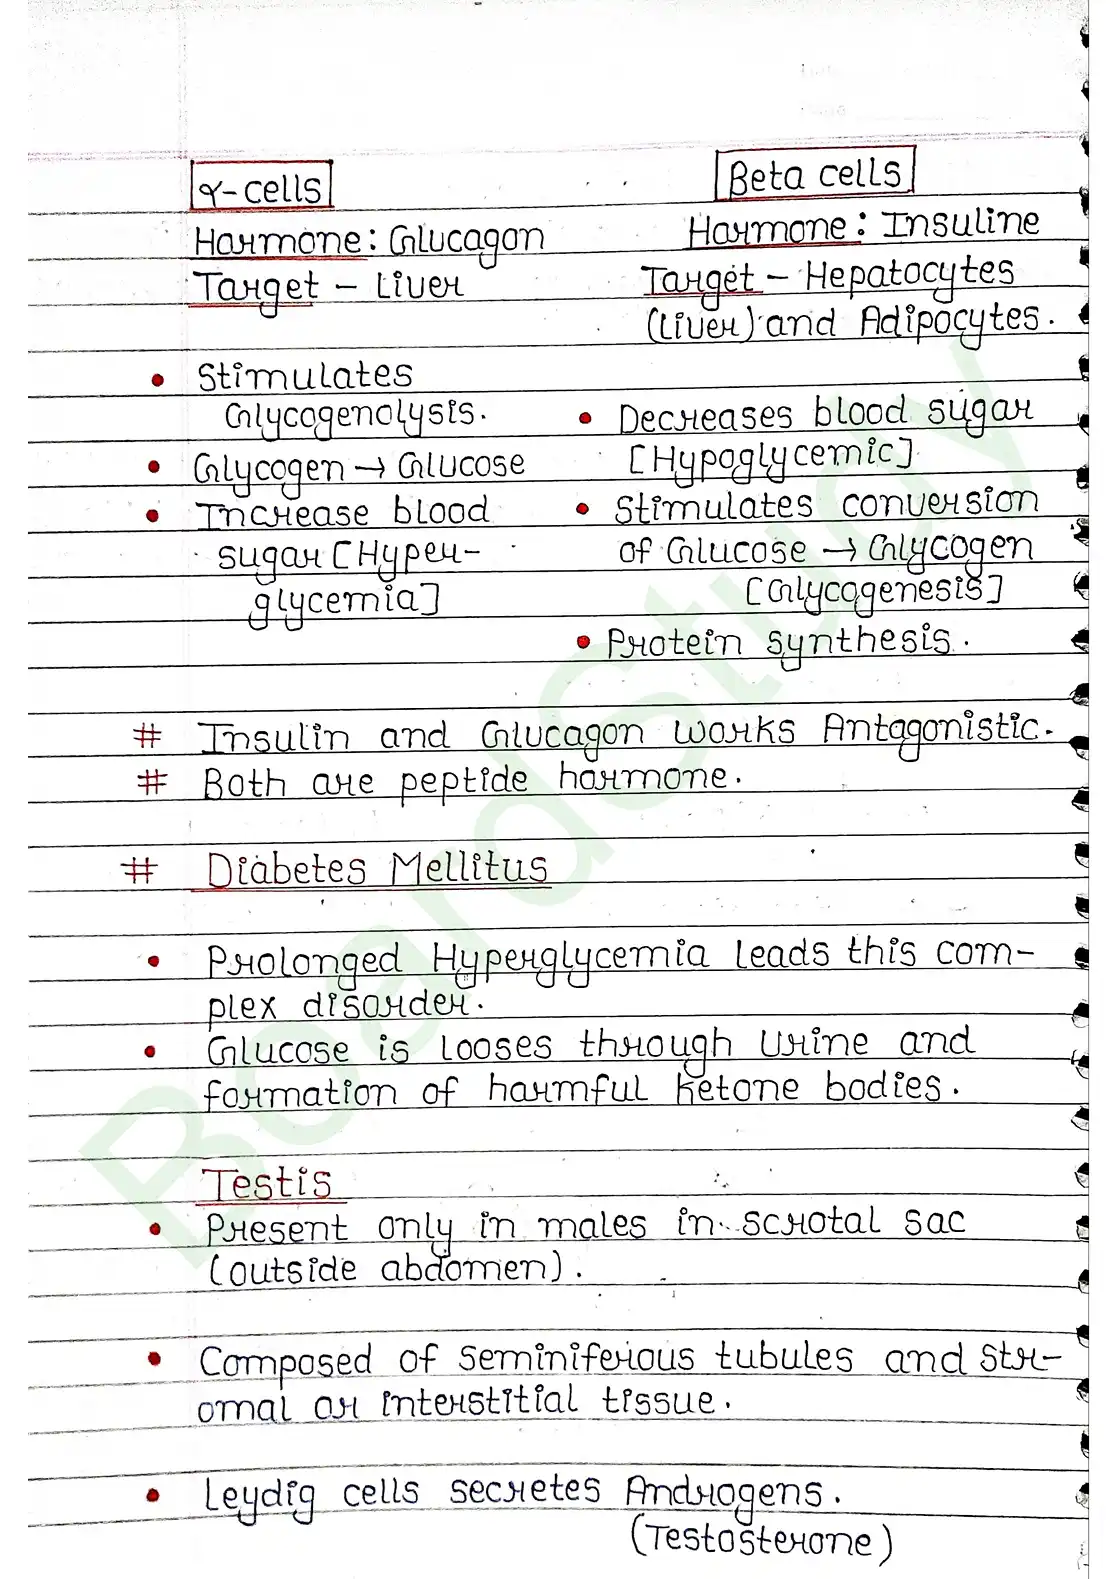 α-cells
Hormone: Glucagon
Target - Liver
• Stimulates
Glycogenolysis.
• Glycogen → Glucose
• Increase blood
sugar [Hyper-
glycemia]
Beta cells
Hormone: Insuline
Target - Hepatocytes
(Liver) and Adipocytes.
• Decreases blood sugar
[Hypoglycemic]
• Stimulates conversion
of Glucose → Glycogen
[Glycogenesis]
• Protein synthesis.
# Insulin and Glucagon works Antagonistic.
# Both are peptide hormone.
# Diabetes Mellitus
• Prolonged Hyperglycemia leads this com-
plex disorder.
• Glucose is looses through Urine and
formation of harmful Ketone bodies.
Testis
• Present only in males in scrotal sac
(outside abdomen).
• Composed of seminiferous tubules and str-
omal or interstitial tissue.
• Leydig cells secretes Androgens.
(Testosterone)
BoardStudy